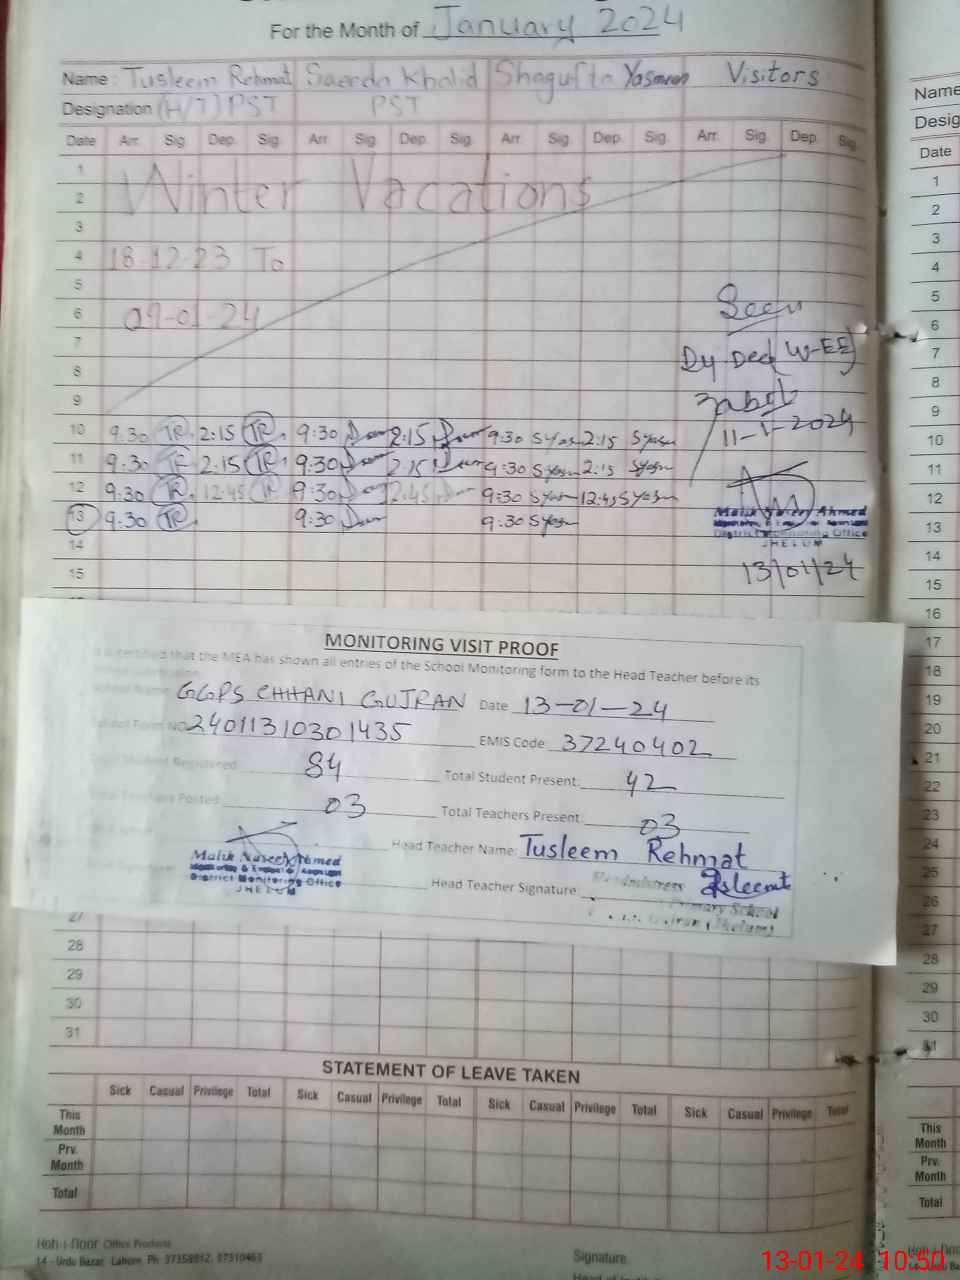 For the Month of January 2024
Name : Tusleem Rehmat Saeeda Khalid Shagufta Yasmeen Visitors
Designation (H/T) PST PST
Date Arr. Sig. Dep. Sig. Arr. Sig. Dep. Sig. Arr. Sig. Dep. Sig. Arr. Sig. Dep. Sig.
1
2 Winter Vacations
3
4 18-12-23 To
5
6 09-01-24
Seen
7
Dy. Deo (W-EE)
8
9
11-1-2024
10 9:30 TR. 2:15 TR. 9:30 2:15 9:30 Syasm 2:15 Syasm
11 9:30 TR 2:15 TR. 9:30 2:15 9:30 Syasm 2:15 Syasm
12 9:30 TR. 12:45 TR 9:30 12:45 9:30 Syasm 12:45 Syasm
13 9:30 TR. 9:30 9:30 Syasm
Malik Naseer Ahmed
District Monitoring Office
JHELUM
14
13/01/24
15
MONITORING VISIT PROOF
It is certified that the MEA has shown all entries of the School Monitoring form to the Head Teacher before its
School Name GGPS CHHANI GUJRAN Date 13-01-24
School Form NO 24011310301435 EMIS Code 37240402
Total Student Registered: 84 Total Student Present: 42
Total Teachers Posted: 03 Total Teachers Present: 03
Head Teacher Name: Tusleem Rehmat
Malik Naseer Ahmed
District Monitoring Office
JHELUM
Head Teacher Signature:
Headmistress
Primary School
Gujran (Jhelum)
27
28
29
30
31
STATEMENT OF LEAVE TAKEN
Sick Casual Privilege Total Sick Casual Privilege Total Sick Casual Privilege Total Sick Casual Privilege Total
This Month
Prv. Month
Total
Office Products
14 - Urdu Bazar, Lahore. Ph: 37358812, 37310463
Signature
Name
Desig
Date
1
2
3
4
5
6
7
8
9
10
11
12
13
14
15
16
17
18
19
20
21
22
23
24
25
26
27
28
29
30
31
This Month
Prv. Month
Total
13-01-24 10:50